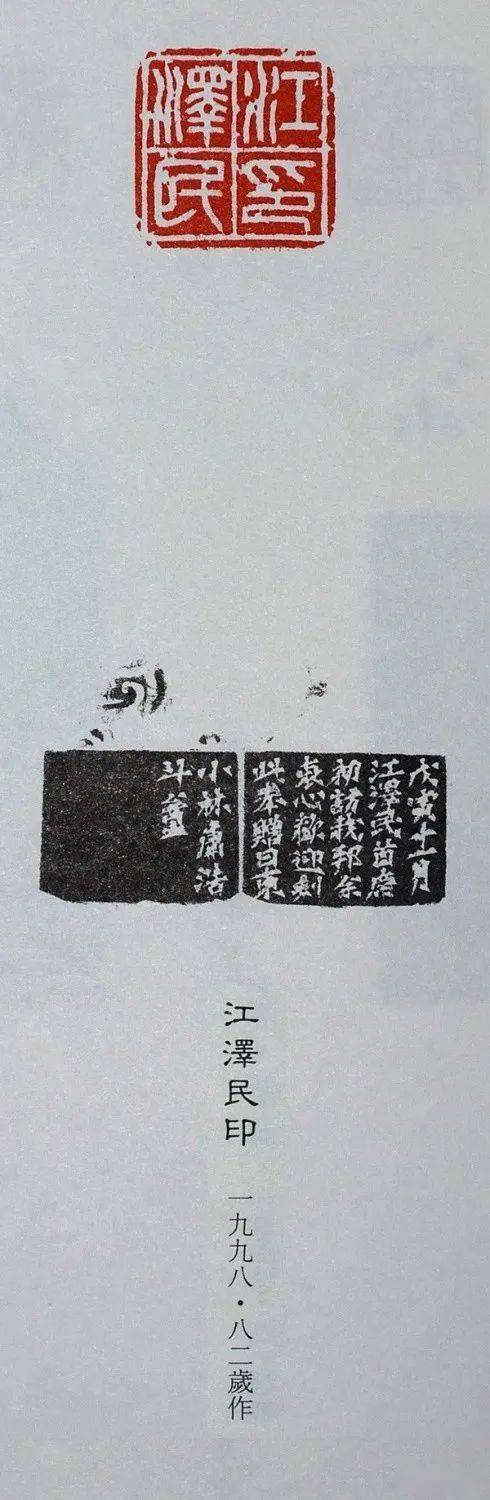 江澤民印
戊寅十一月
江澤民首席
初訪我邦余
衷心歡迎刻
此奉贈日東
小林庸浩
斗盦
江澤民印 一九九八・八二歲作